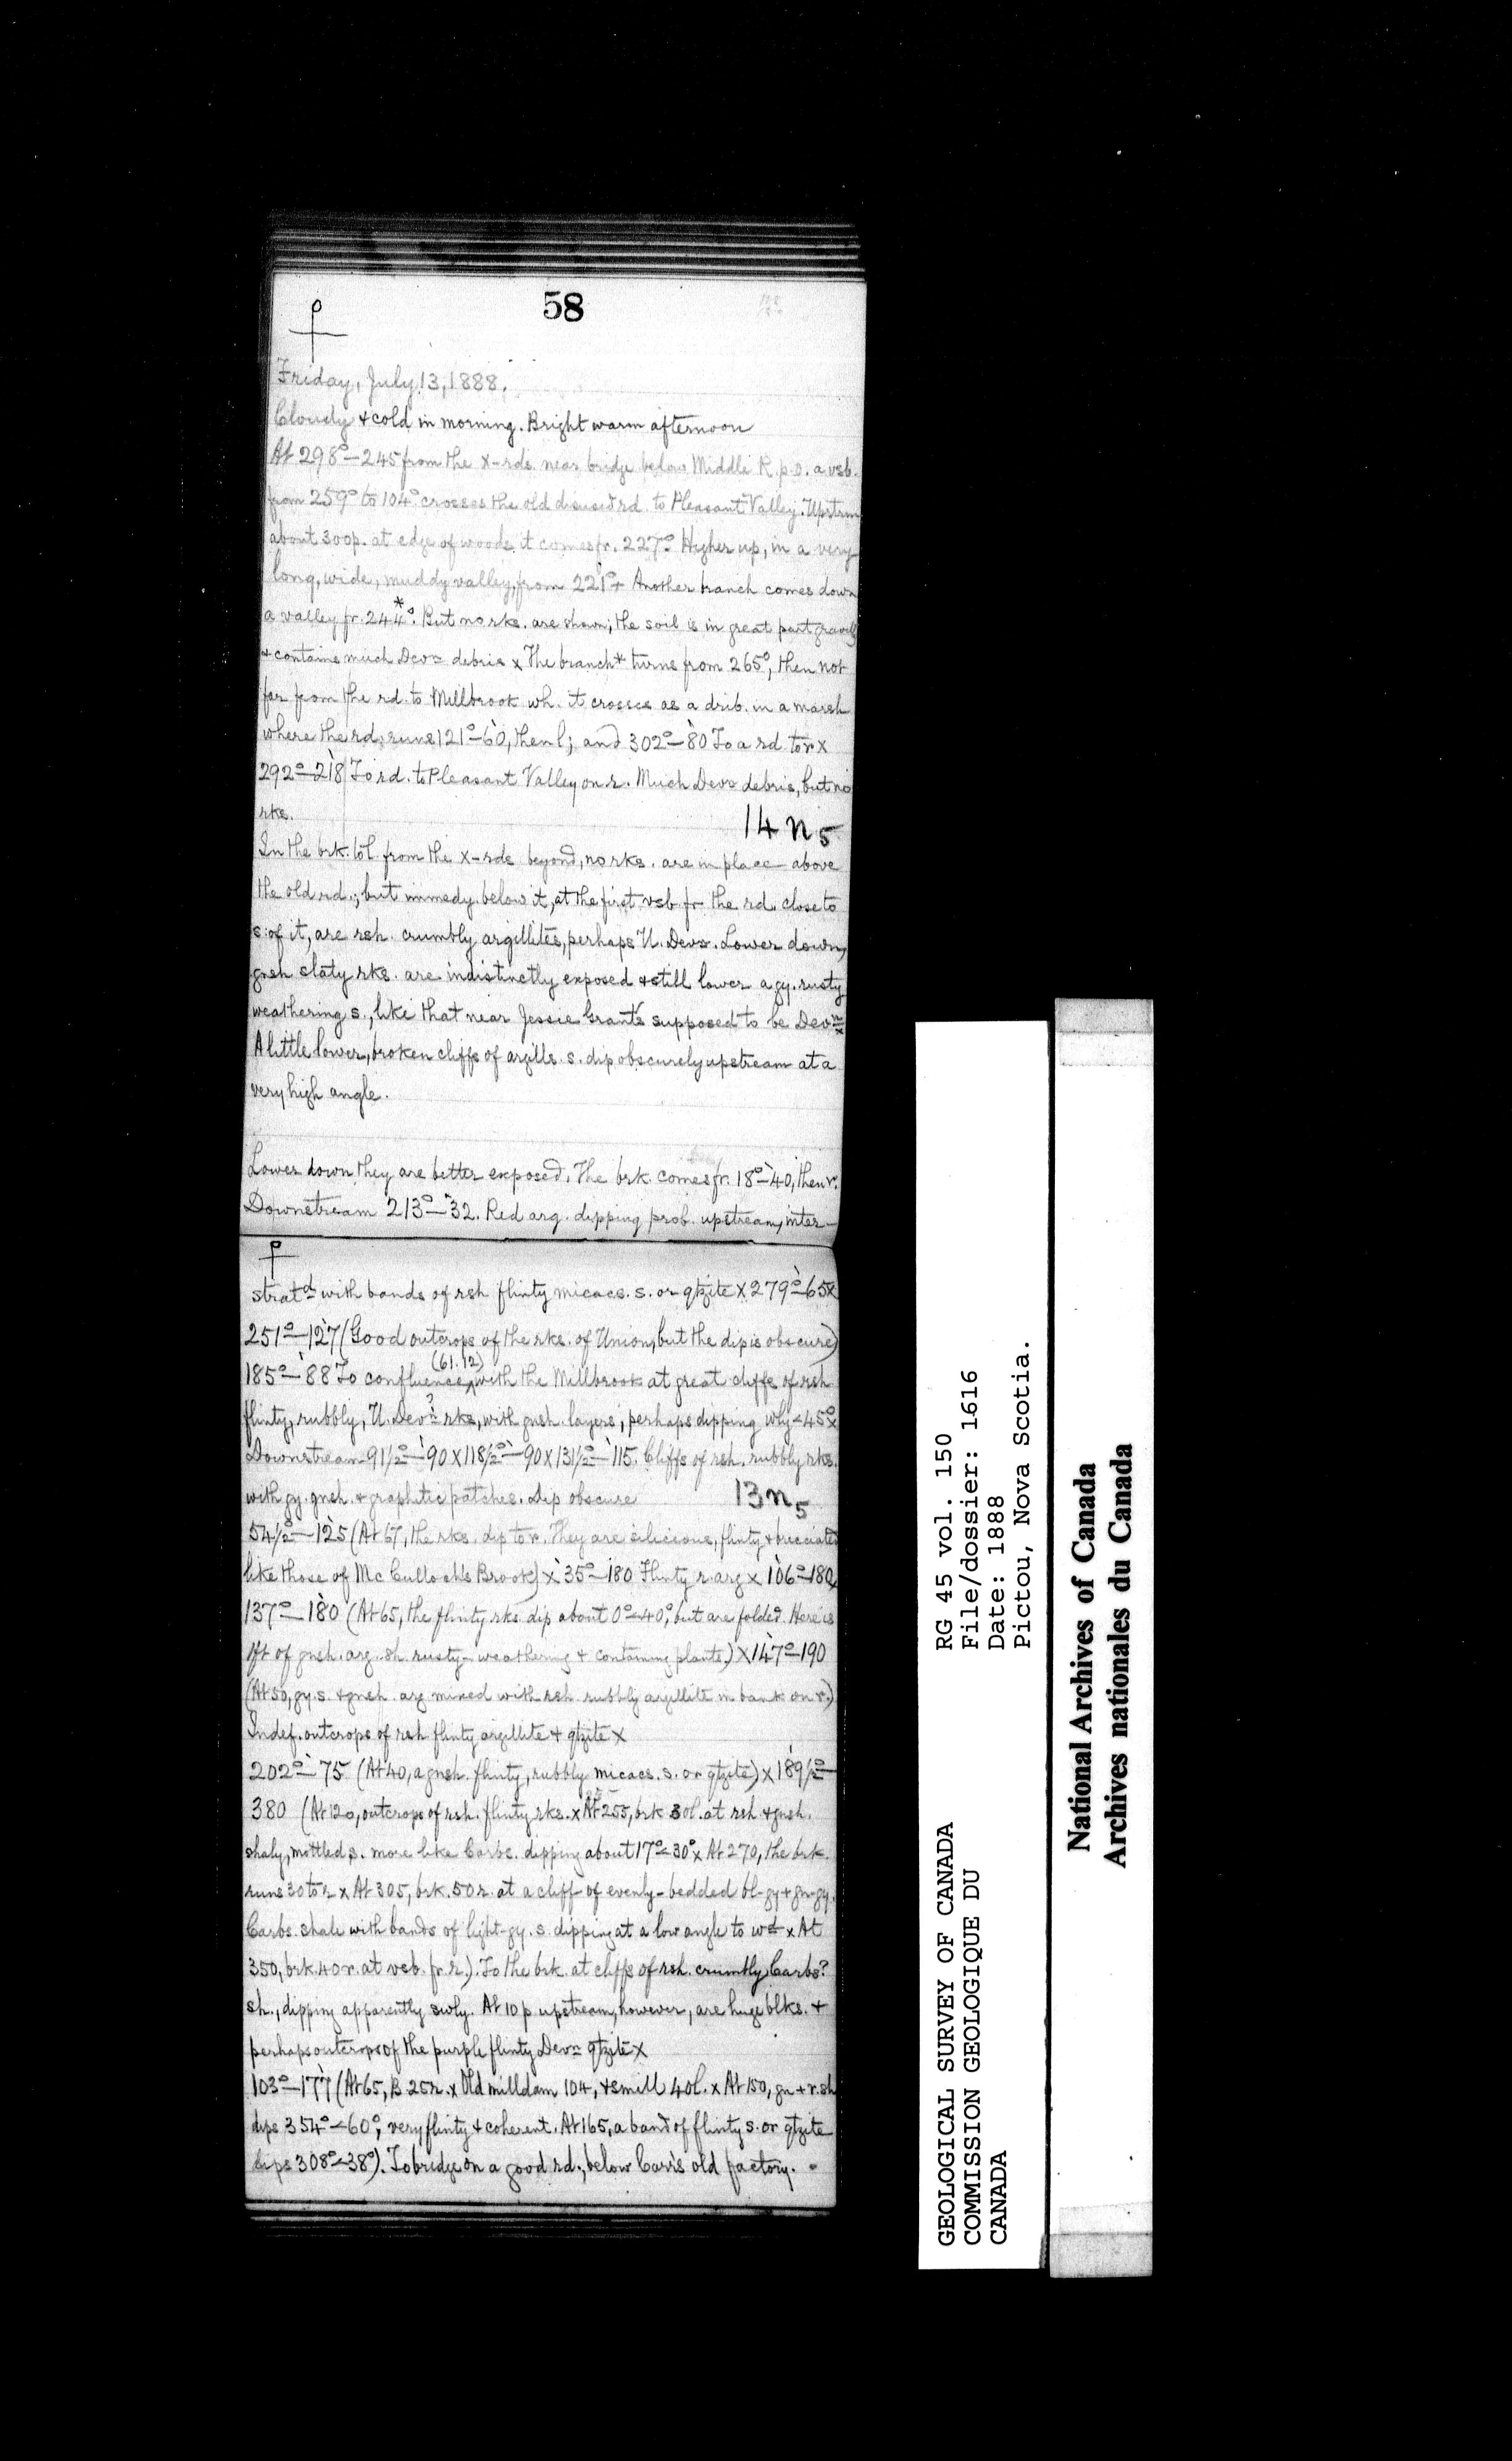 58
Friday, July 13, 1888.
Cloudy + cold in morning. Bright warm afternoon
At 298°–245 from the x-rds. near bridge below Middle R. p.o. a vsb.
from 259° to 104° crosses the old disused rd. to Pleasant Valley. Upstream
about 300p. at edge of woods it comes fr. 227°. Higher up, in a very
long, wide, muddy valley, from 221° x Another branch comes down
a valley fr. 244°.* But no rks. are shown; the soil is in great part gravelly
+ contains much Devn debris x The branch* turns from 265°, then not
far from the rd. to Millbrook wh. it crosses as a drib. in a marsh
where the rd. runs 121°–60, then l; and 302°–80 To a rd. to r x
292°–218 To rd. to Pleasant Valley on r. Much Devn debris, but no
rks.
14 n 5
In the brk. to l. from the x-rds beyond, no rks. are in place above
the old rd.; but immedy. below it, at the first vsb. fr the rd. close to
s. of it, are rsh. crumbly argillites, perhaps U. Devn. Lower down,
gnsh slaty rks. are indistinctly exposed + still lower a gy. rusty
weathering s., like that near Jessie Grant's supposed to be Devn x
A little lower, broken cliffs of argills. s. dip obscurely upstream at a
very high angle.
Lower down they are better exposed. The brk. comes fr. 18°–40, then r.
Downstream 213°–32. Red arg. dipping prob. upstream, inter-
stratd with bands of rsh flinty micacs. s. or qtzite x 279°–65 x
251°–127 (Good outcrops of the rks. of Union, but the dip is obscure)
185°–88 To confluence (61.12) with the Millbrook at great cliffs of rsh
flinty, rubbly, U. Devn? rks, with gnsh. layers, perhaps dipping wly < 45° x
Downstream 91½°–90 x 118½°–90 x 131½°–115. Cliffs of rsh. rubbly rks.
with gy. gnsh. + graphitic patches. Dip obscure
13 n 5
54½°–125 (At 67, the rks. dip to r. They are silicious, flinty + brecciated
like those of McCulloch's Brook) x 35°–180 Flinty r. arg x 106°–180 x
137°–180 (At 65, the flinty rks. dip about 0° < 40°, but are folded. Here is
1ft of gnsh. arg. sh. rusty-weathering + containing plants) x 147°–190
(At 50, gy. s. + gnsh. arg mixed with rsh. rubbly argillite in bank on r.)
Indef. outcrops of rsh flinty argillite + qtzite x
202°–75 (At 40, a gnsh. flinty, rubbly micacs. s. or qtzite) x 189½°–
380 (At 120, outcrops of rsh. flinty rks. x At 255, brk 30l. at rsh + gnsh.
shaly, mottled s. more like Carbs. dipping about 17° < 30° x At 270, the brk.
runs 30 to r x At 305, brk. 50 r. at a cliff of evenly-bedded bl-gy + gn-gy.
Carbs. shale with bands of light-gy. s. dipping at a low angle to wd x At
350, brk. 40 r. at vsb. fr. r.). To the brk. at cliffs of rsh. crumbly Carbs?
sh., dipping apparently swly. At 10 p upstream, however, are huge blks. +
perhaps outcrops of the purple flinty Devn qtzite x
103°–177 (At 65, B. 25r. x Old milldam 104, + smill 40l. x At 150, gn + r. sh
dips 354° < 60°, very flinty + coherent. At 165, a band of flinty s. or qtzite
dips 308° < 38°). To bridge on a good rd., below Carr's old factory.
GEOLOGICAL SURVEY OF CANADA
COMMISSION GEOLOGIQUE DU
CANADA
RG 45 vol. 150
File/dossier: 1616
Date: 1888
Pictou, Nova Scotia.
National Archives of Canada
Archives nationales du Canada